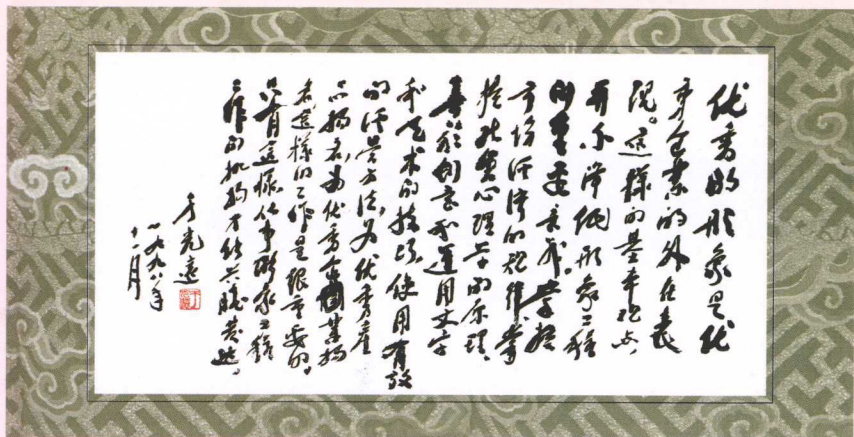 优秀的形象是优
秀企业的外在表
现。这样的基本观点
并不降低形象工程
的重要意义。掌握
市场经济的规律，掌
握社会心理学的原理，
善于创意和运用文字
和艺术的技巧，使用有效
的经营方法，为优秀产
品扬名，为优秀企业扬
名，这样的工作是很重要的。
只有这样从事形象工程
工作的机构才能兴旺发达。
于光远
一九九八年
十一月